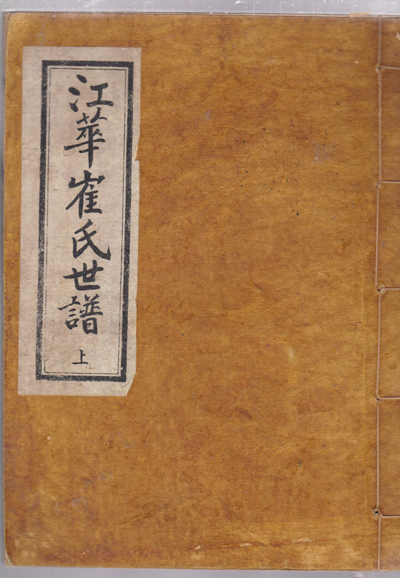 江華崔氏世譜
上